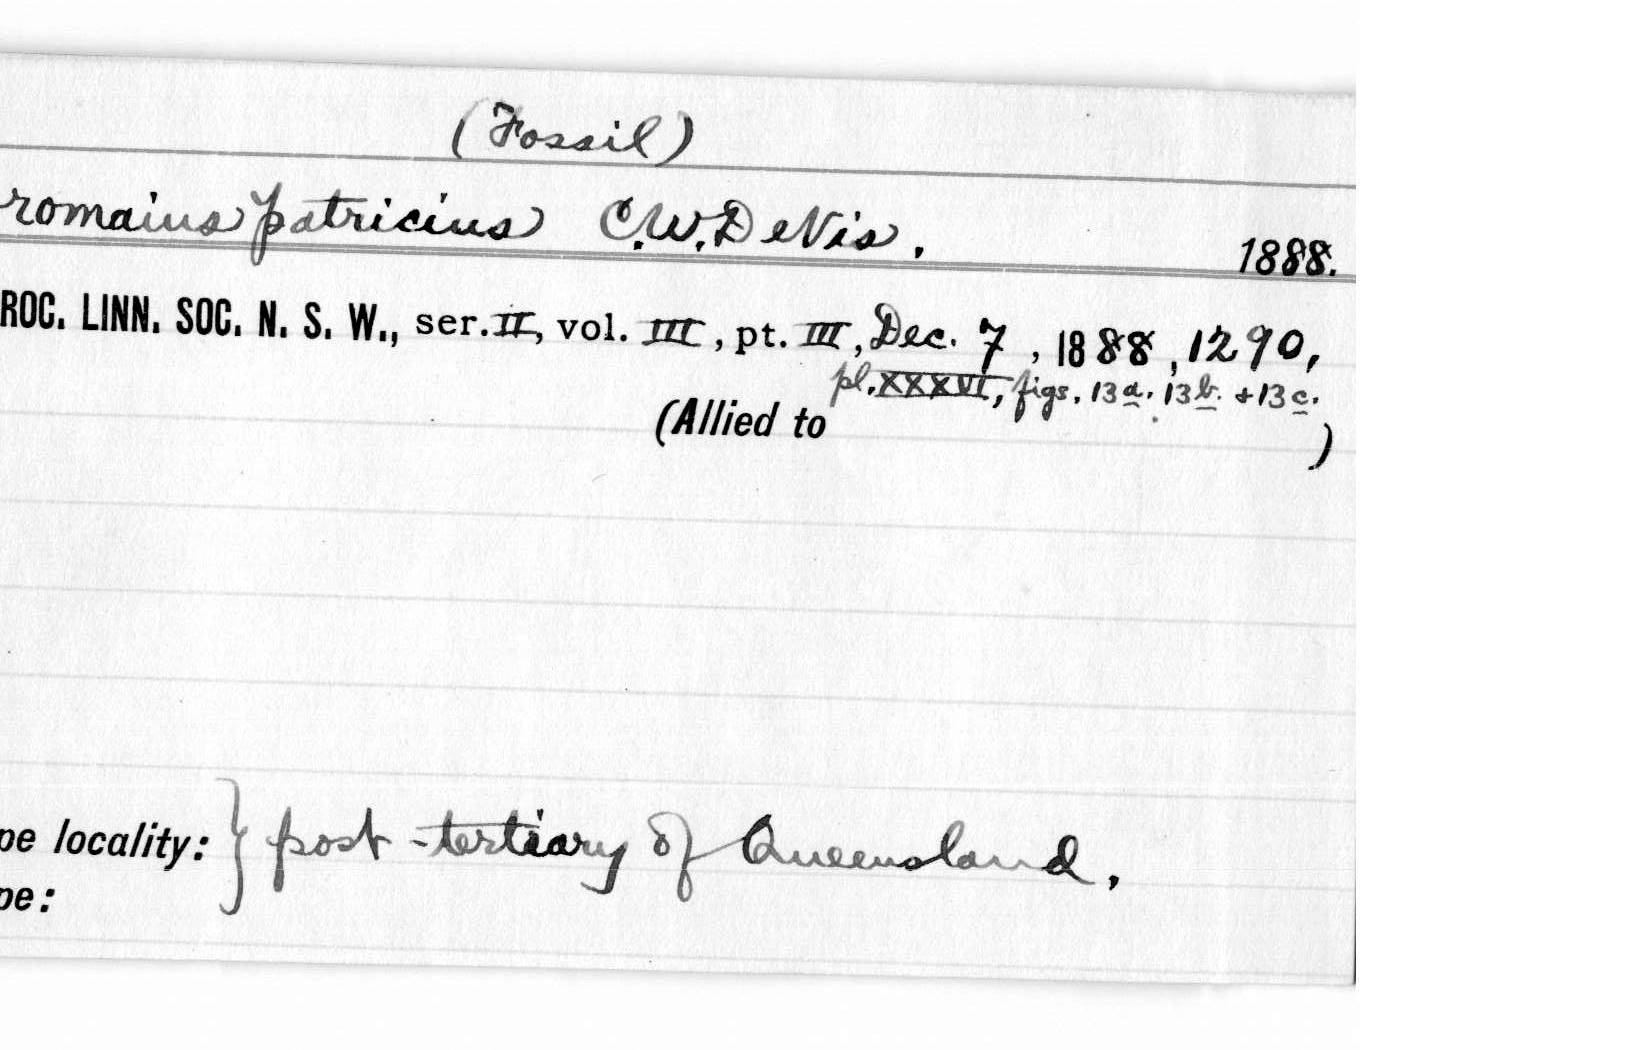 (Fossil)
romaius patricius C.W. De Vis.
1888.
ROC. LINN. SOC. N. S. W., ser. II, vol. III, pt. III, Dec. 7, 1888, 1290,
pl. XXXVI, figs. 13a. 13b. + 13c.
(Allied to )
pe locality: } post-tertiary of Queensland.
pe: